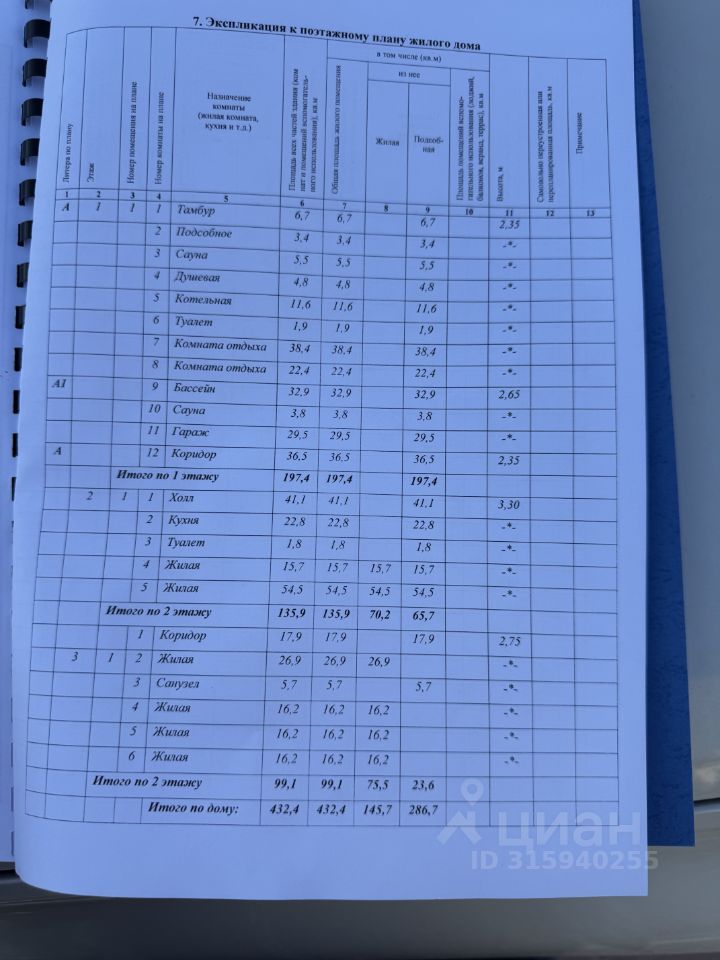 7. Экспликация к поэтажному плану жилого дома
Литера по плану
Этаж
Номер помещения на плане
Номер комнаты на плане
Назначение
комнаты
(жилая комната,
кухня и т.п.)
Площадь всех частей здания (ком
нат и помещений вспомогатель-
ного использования), кв.м
в том числе (кв.м)
Общая площадь жилого помещения
из нее
Жилая
Подсоб-
ная
Площадь помещений вспомо-
гательного использования (лоджий,
балконов, веранд, террас), кв.м
Высота, м
Самовольно переустроенная или
перепланированная площадь, кв.м
Примечание
1 2 3 4 5 6 7 8 9 10 11 12 13
А 1 1 1 Тамбур 6,7 6,7 6,7 2,35
2 Подсобное 3,4 3,4 3,4 -*-
3 Сауна 5,5 5,5 5,5 -*-
4 Душевая 4,8 4,8 4,8 -*-
5 Котельная 11,6 11,6 11,6 -*-
6 Туалет 1,9 1,9 1,9 -*-
7 Комната отдыха 38,4 38,4 38,4 -*-
8 Комната отдыха 22,4 22,4 22,4 -*-
А1 9 Бассейн 32,9 32,9 32,9 2,65
10 Сауна 3,8 3,8 3,8 -*-
11 Гараж 29,5 29,5 29,5 -*-
А 12 Коридор 36,5 36,5 36,5 2,35
Итого по 1 этажу 197,4 197,4 197,4
2 1 1 Холл 41,1 41,1 41,1 3,30
2 Кухня 22,8 22,8 22,8 -*-
3 Туалет 1,8 1,8 1,8 -*-
4 Жилая 15,7 15,7 15,7 15,7 -*-
5 Жилая 54,5 54,5 54,5 54,5 -*-
Итого по 2 этажу 135,9 135,9 70,2 65,7
1 Коридор 17,9 17,9 17,9 2,75
3 1 2 Жилая 26,9 26,9 26,9 -*-
3 Санузел 5,7 5,7 5,7 -*-
4 Жилая 16,2 16,2 16,2 -*-
5 Жилая 16,2 16,2 16,2 -*-
6 Жилая 16,2 16,2 16,2 -*-
Итого по 2 этажу 99,1 99,1 75,5 23,6
Итого по дому: 432,4 432,4 145,7 286,7
циан
ID 315940255